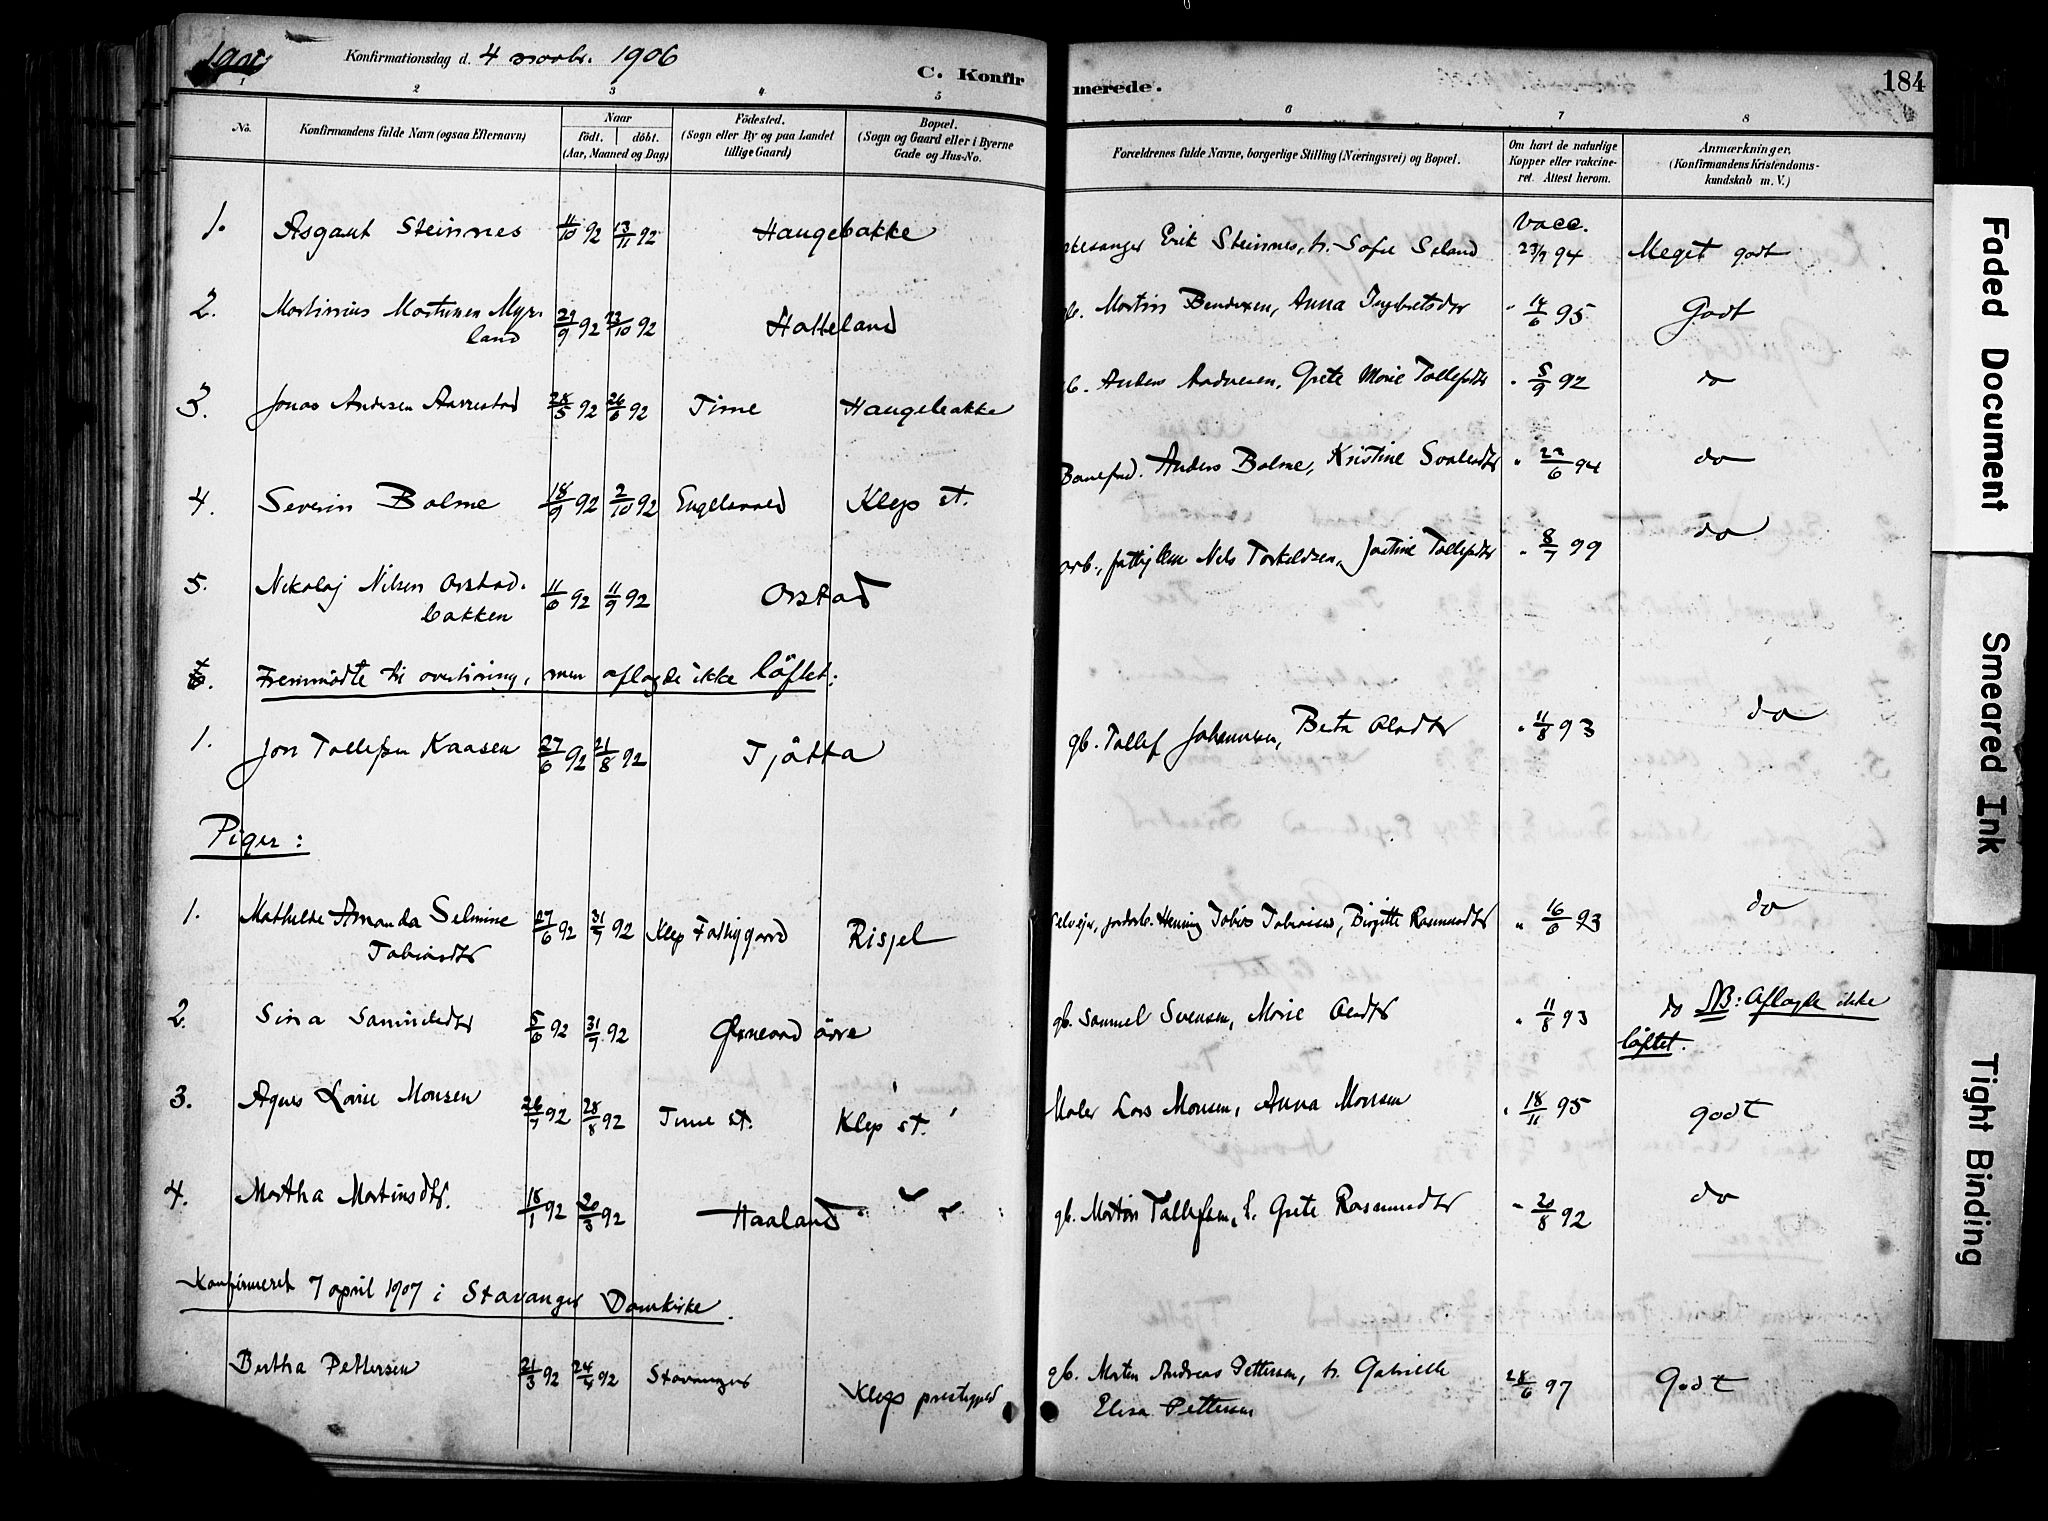 1906 Konfirmationsdag d. 4 novbr. 1906 C. Konfirmerede. 184
1 2 3 4 5 6 7 8
No. Konfirmandens fulde Navn (ogsaa Efternavn) Naar født. døbt. (Aar, Maaned og Dag) Fødested. (Sogn eller By og paa Landet tillige Gaard) Bopæl. (Sogn og Gaard eller i Byerne Gade og Hus-No. Forældrenes fulde Navne, borgerlige Stilling (Næringsvei) og Bopæl. Om havt de naturlige Kopper eller vakcineret. Attest herom. Anmærkninger. (Konfirmandens Kristendomskundskab m. V.)
1. Asgaut Steinnes 11/10 92 13/11 92 Haugebakke Erik Steinnes, h. Sofie Seland Vacc. 23/9 94 Meget godt
2. Martinius Martinsen Myrland 29/9 92 23/10 92 Hatteland gb. Martin Bendixen, Anna Ingebretsdtr " 14/6 95 Godt
3. Jonas Andersen Aarrestad 28/5 92 26/6 92 Time Haugebakke gb. Anders Andresen, Grete Marie Tollefsdtr " 5/9 92 do
4. Severin Bolme 18/9 92 2/10 92 Engelsvold Klep st. Banefmd. Anders Bolme, Kristine " 22/6 94 do
5. Nikolaj Nilsen Orstadbakken 11/6 92 11/9 92 Orstad Nels Torkeldsen, Jostine Tollefsdtr " 8/7 99 do
Fremmødte til overhøring, men aflagde ikke løftet:
1. Jon Tollefsen Kaasen 27/6 92 21/8 92 Tjøtta gb. Tollef Johannesen, Berta Olsdtr " 11/8 93 do
Piger:
1. Mathilde Amanda Selmine Tobiasdtr 27/6 92 31/7 92 Klep Fattiggaard Risjel Selvejer, Henning Tobias Tobiassen, Birgitte Rasmusdtr " 16/6 93 do
2. Sina Samueldtr 5/6 92 31/7 92 Øxnevad øvre gb. Samuel Svensen, Marie " 11/8 93 do NB: Aflagde ikke løftet.
3. Agnes Lovise Monsen 26/7 92 28/8 92 Time st. Klep st. Maler Lars Monsen, Anna Monsen " 18/11 95 godt
4. Martha Martinsdtr. 18/1 92 20/3 92 Haaland gb. Martin Tollefsen, E. Grete Rasmusdtr " 20/8 92 do
Konfirmeret 7 april 1907 i Stavanger Domkirke.
Bertha Pettersen 21/3 92 24/4 92 Stavanger Klep prestegjeld gb. Morten Andreas Pettersen, h. Gabrielle Elisa Pettersen 28/6 97 Godt
Faded Document
Smeared Ink
Tight Binding